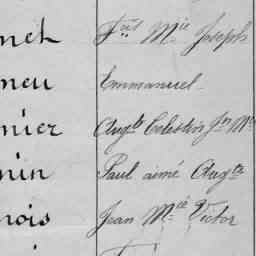 net Fçois Mie Joseph
meu Emmanuel
nier Augte Celestin Jn Mie
nin Paul aimé Augte
nois Jean Mie Victor